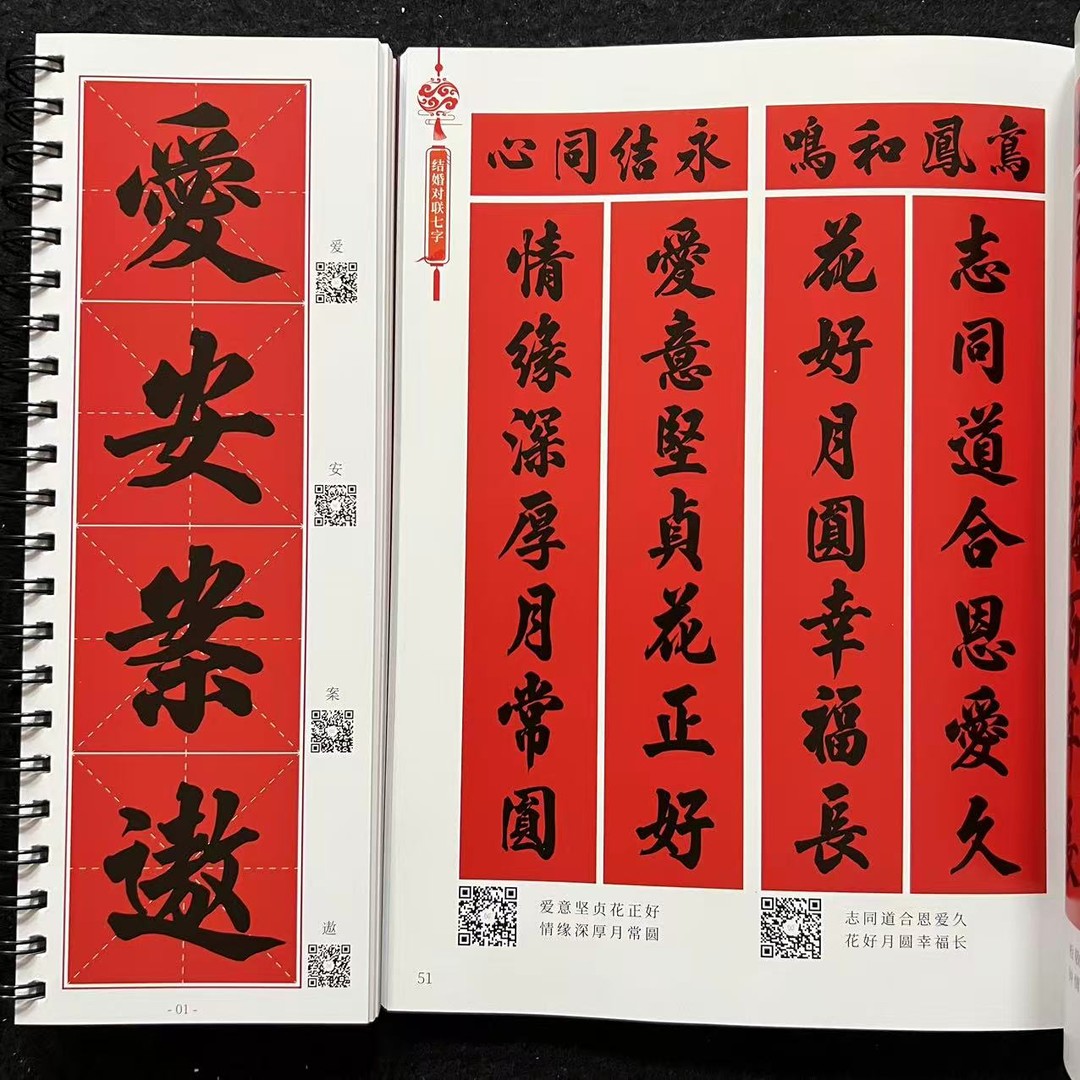 愛
爱
安
安
案
案
遨
遨
- 01 -
结婚对联七字
鸞鳳和鳴
志同道合恩愛久
花好月圓幸福長
志同道合恩爱久
花好月圆幸福长
永结同心
愛意堅貞花正好
情缘深厚月常圓
爱意坚贞花正好
情缘深厚月常圆
51